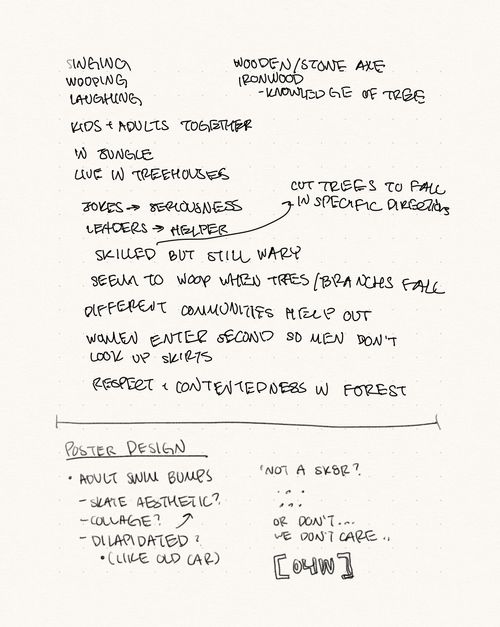 SINGING
WOOPING
LAUGHING
WOODEN/STONE AXE
IRONWOOD
-KNOWLEDGE OF TREE
KIDS + ADULTS TOGETHER
IN JUNGLE
LIVE IN TREEHOUSES
JOKES → SERIOUSNESS
LEADERS → HELPER
CUT TREES TO FALL
IN SPECIFIC DIRECTIONS
SKILLED BUT STILL WARY
SEEM TO WOOP WHEN TREES/BRANCHS FALL
DIFFERENT COMMUNITIES HELP OUT
WOMEN ENTER SECOND SO MEN DON'T
LOOK UP SKIRTS
RESPECT + CONTENTEDNESS IN FOREST
POSTER DESIGN
• ADULT SWIM BUMPS
- SKATE AESTHETIC?
- COLLAGE?
- DILAPIDATED?
• (LIKE OLD CAR)
'NOT A SK8R?
. . .
. . .
OR DON'T...
WE DON'T CARE..